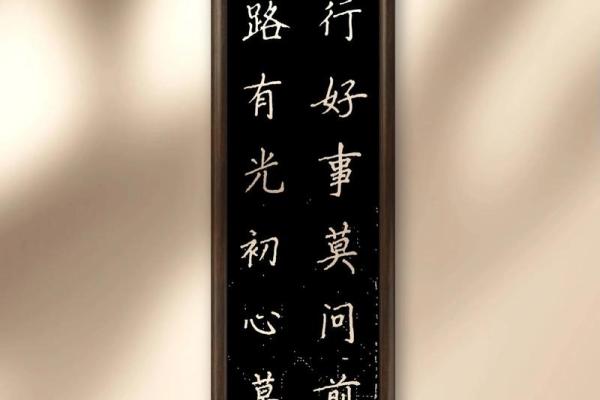 行好事莫问前
路有光初心莫